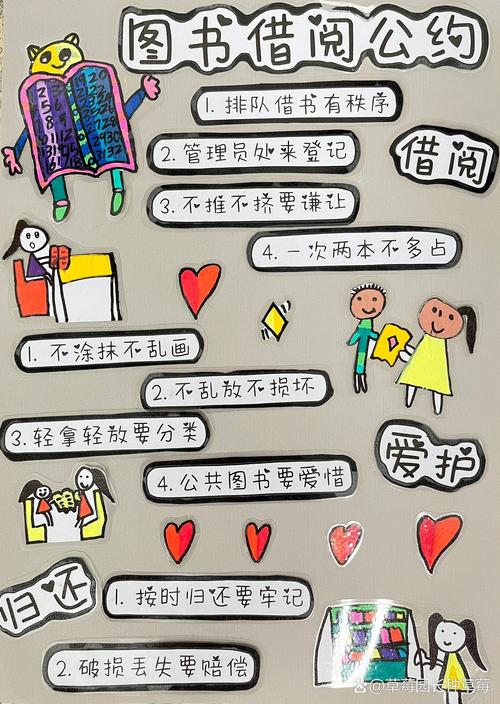 图书借阅公约
1. 排队借书有秩序
2. 管理员处来登记
借阅
3. 不推不挤要谦让
4. 一次两本不多占
1. 不涂抹不乱画
2. 不乱放不损坏
3. 轻拿轻放要分类
爱护
4. 公共图书要爱惜
归还
1. 按时归还要牢记
2. 破损丢失要赔偿
@草莓园长种草莓